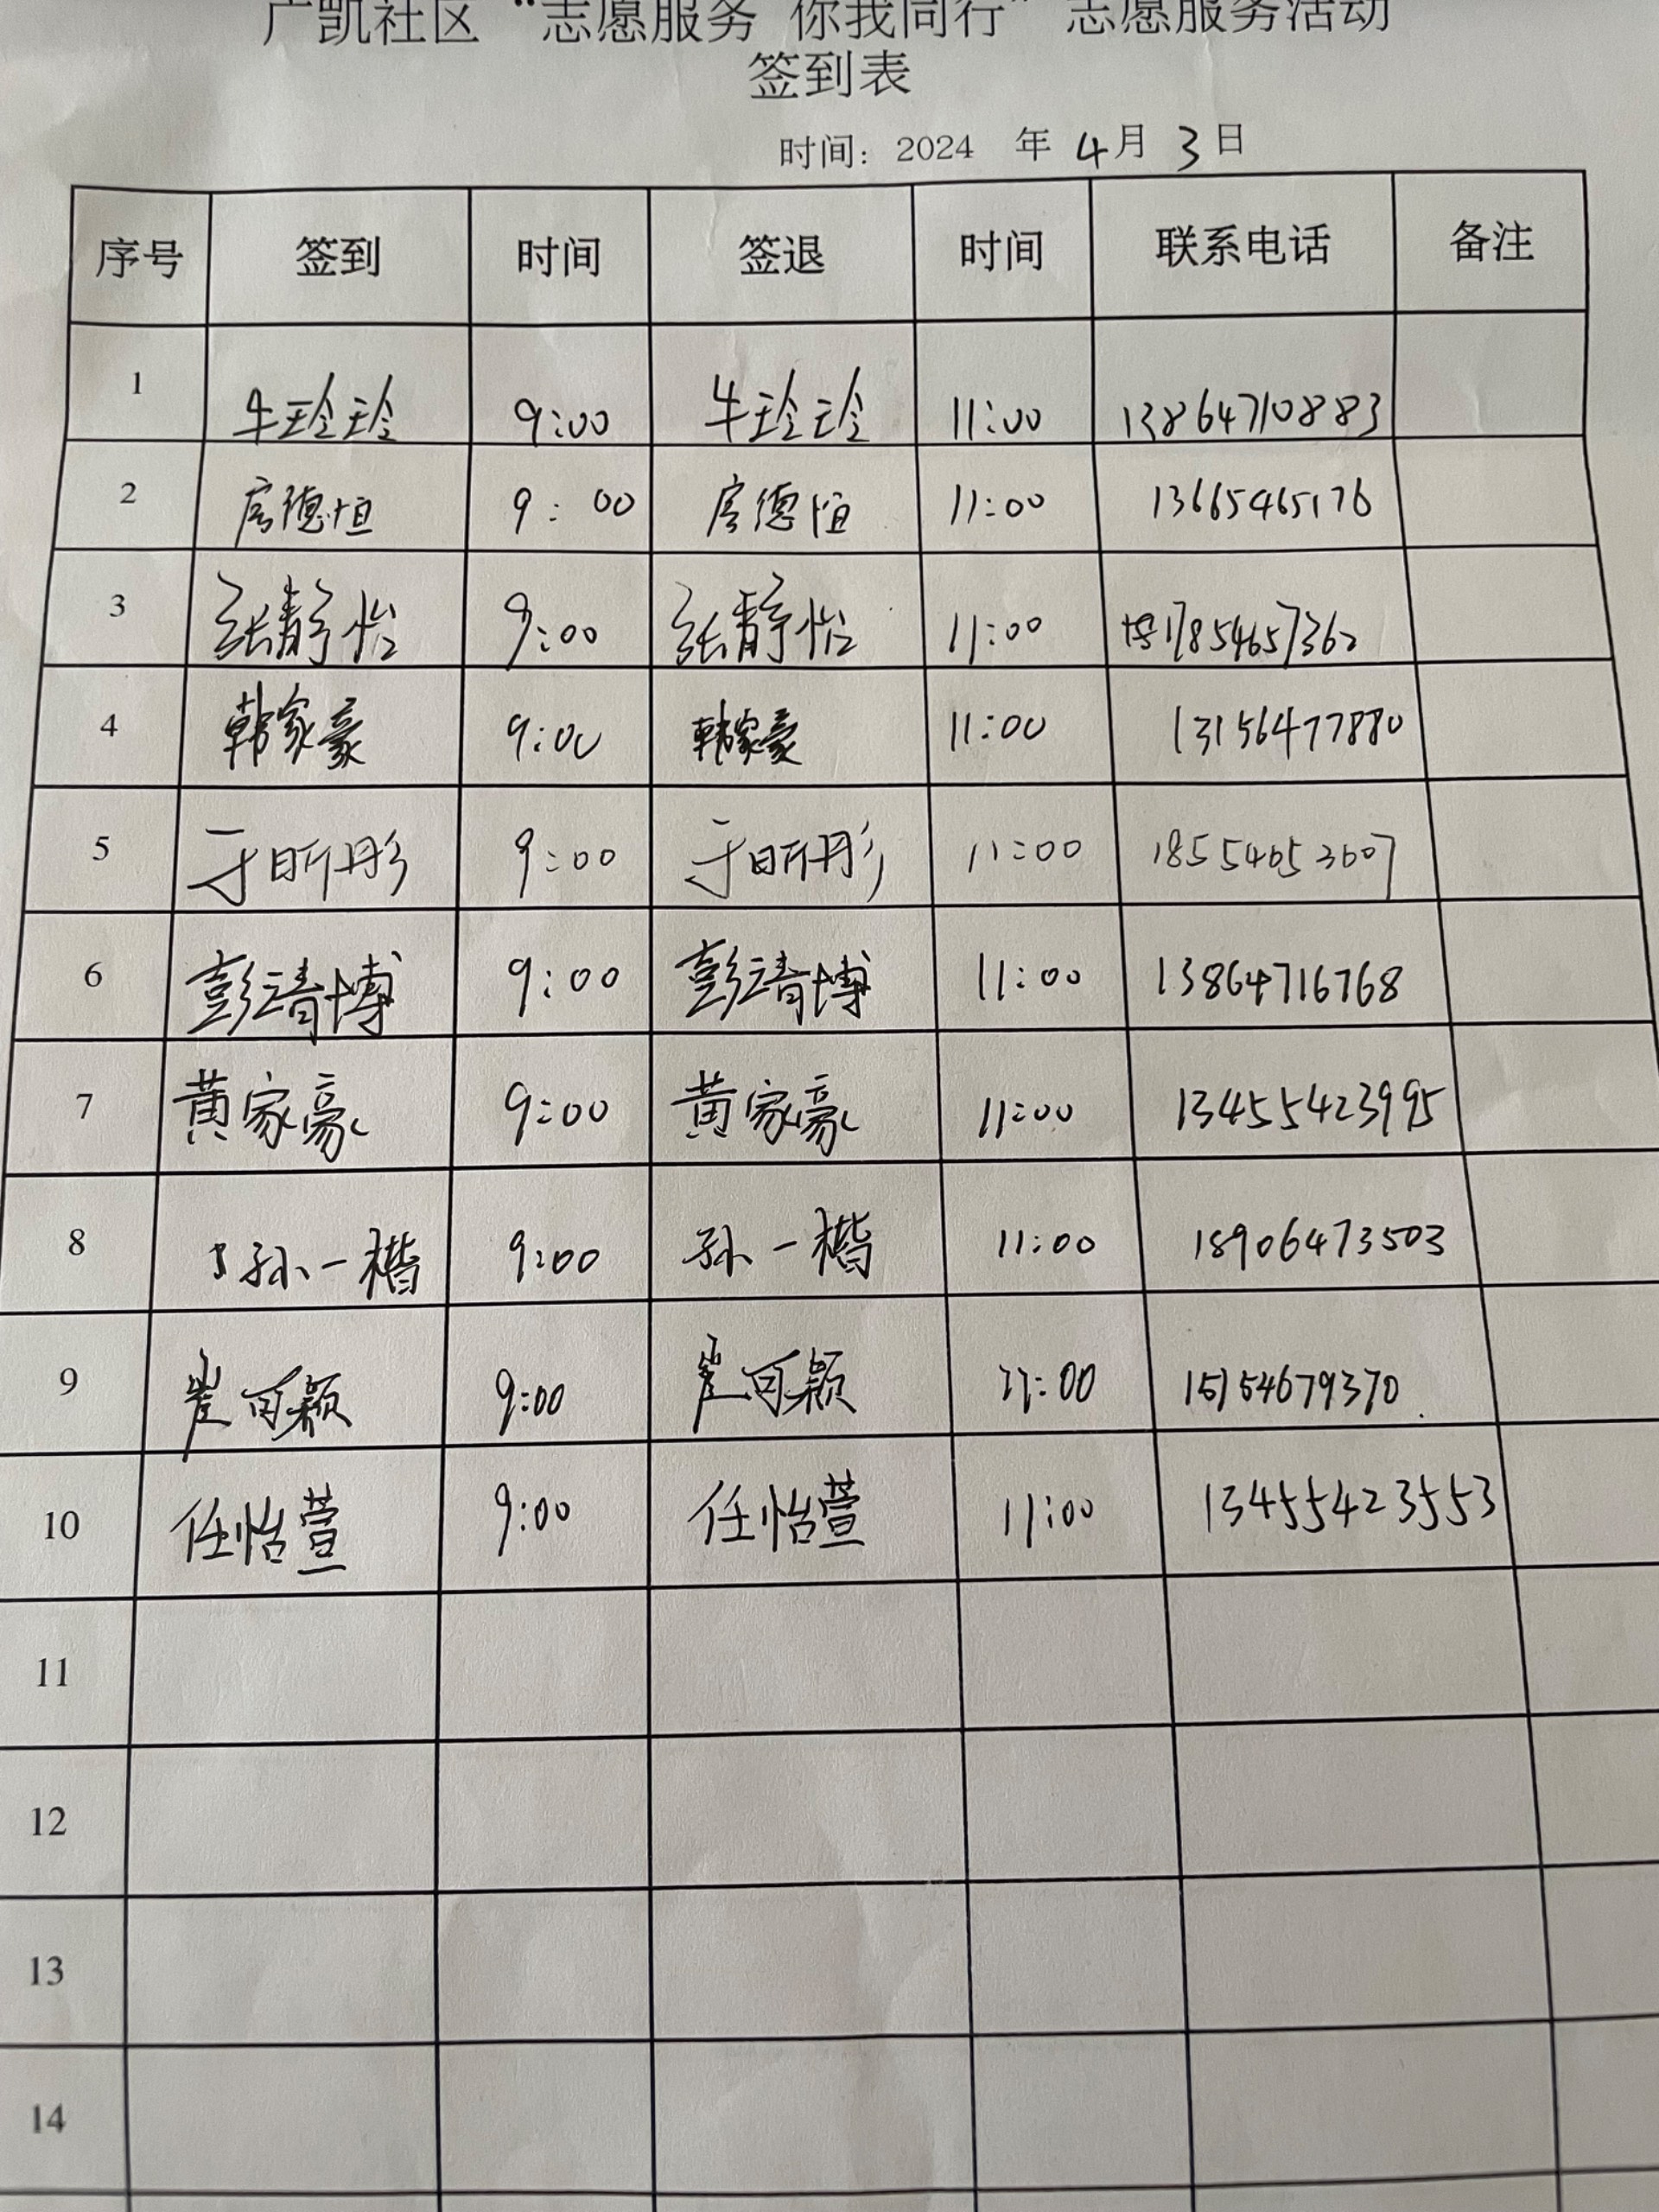 广凯社区“志愿服务 你我同行”志愿服务活动
签到表
时间：2024 年 4月 3日
序号 签到 时间 签退 时间 联系电话 备注
1 牛玲玲 9:00 牛玲玲 11:00 13864710883
2 房德恒 9:00 房德恒 11:00 13665465176
3 张静怡 9:00 张静怡 11:00 17854657362
4 韩家豪 9:00 韩家豪 11:00 13156477880
5 于昕彤 9:00 于昕彤 11:00 18554653607
6 彭靖博 9:00 彭靖博 11:00 13864716768
7 黄家豪 9:00 黄家豪 11:00 13455423995
8 孙一楷 9:00 孙一楷 11:00 18906473503
9 崔可颖 9:00 崔可颖 11:00 15154679370
10 任怡萱 9:00 任怡萱 11:00 13455423553
11
12
13
14